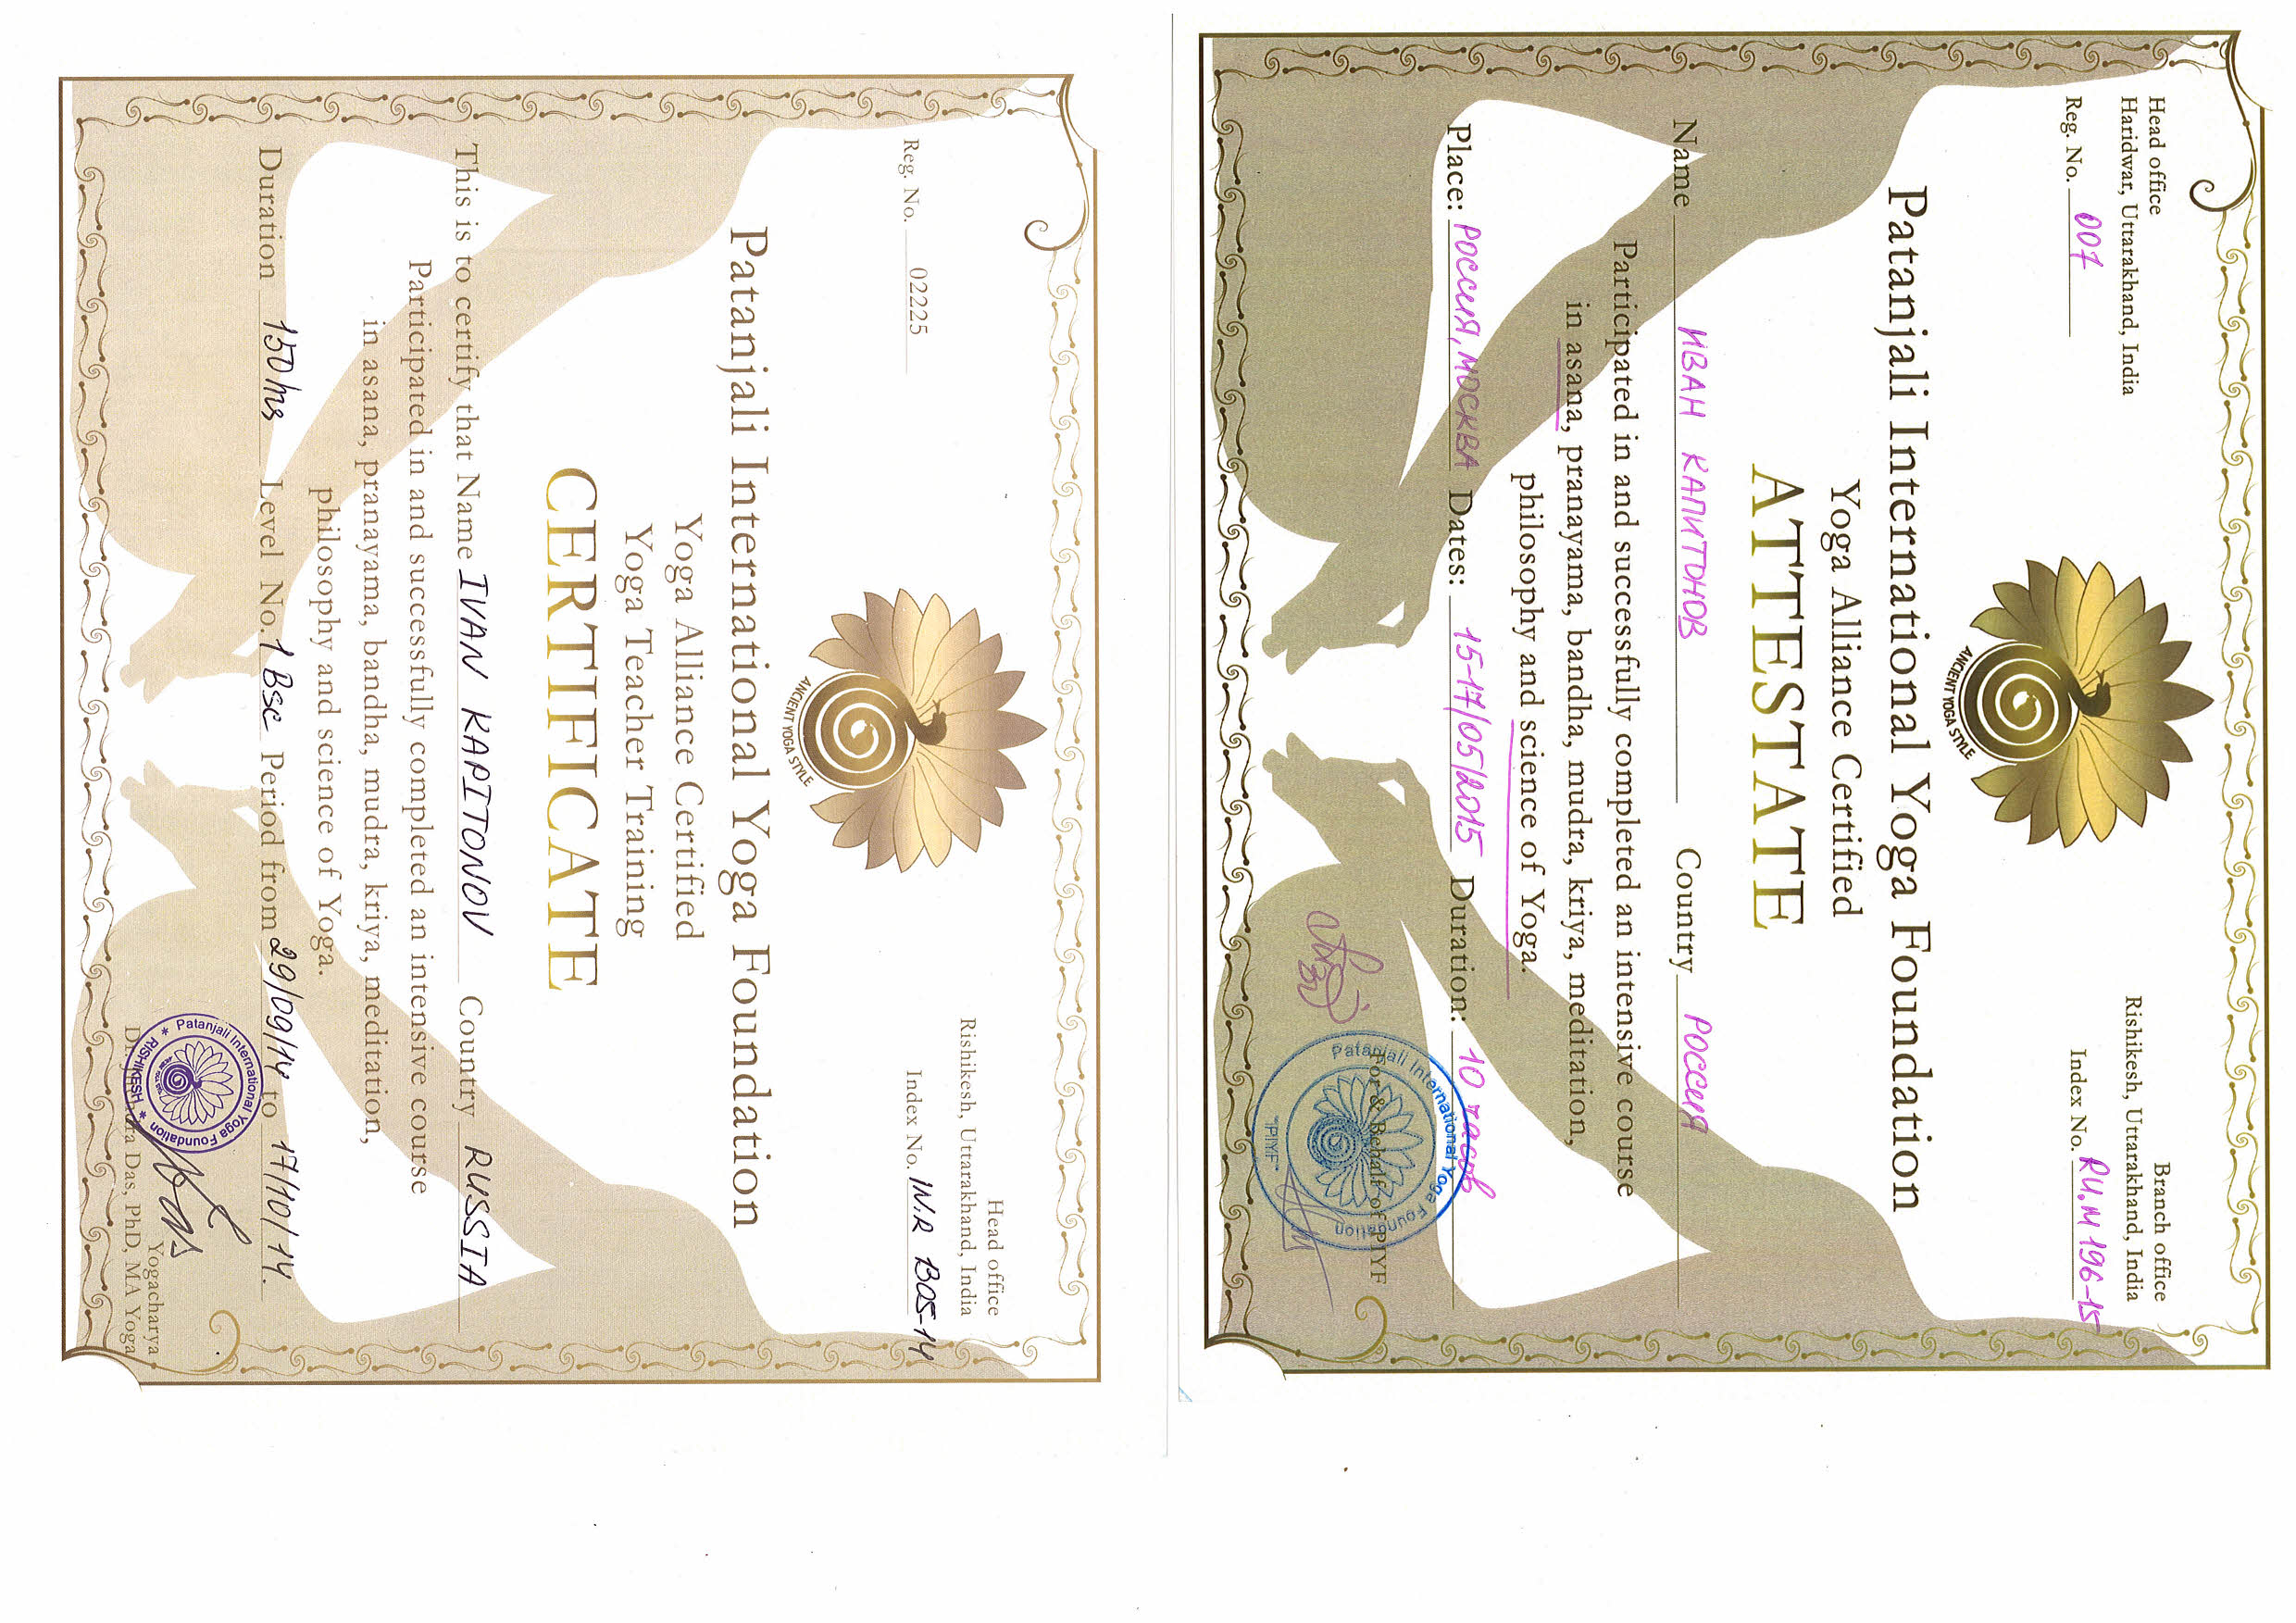 Head office
Haridwar, Uttarakhand, India
Reg. No. 007
Branch office
Rishikesh, Uttarakhand, India
Index No. RU.M 196-15
ANCIENT YOGA STYLE
Patanjali International Yoga Foundation
Yoga Alliance Certified
ATTESTATE
Name ИВАН КАПИТОНОВ Country РОССИЯ
Participated in and successfully completed an intensive course
in asana, pranayama, bandha, mudra, kriya, meditation,
philosophy and science of Yoga.
Place: РОССИЯ, МОСКВА Dates: 15-17/05/2015 Duration: 10 часов
Patanjali International Yoga Foundation
For & Behalf of PIYF
"PIYF"
Head office
Rishikesh, Uttarakhand, India
Reg. No. 02225
Index No. IN.R B05-14
ANCIENT YOGA STYLE
Patanjali International Yoga Foundation
Yoga Alliance Certified
Yoga Teacher Training
CERTIFICATE
This is to certify that Name IVAN KAPITONOV Country RUSSIA
Participated in and successfully completed an intensive course
in asana, pranayama, bandha, mudra, kriya, meditation,
philosophy and science of Yoga.
Duration 150 hrs Level No. 1 Bsc Period from 29/09/14 to 17/10/14.
Patanjali International Yoga Foundation
* RISHIKESH *
Yogacharya
Dr. Das, PhD, MA Yoga